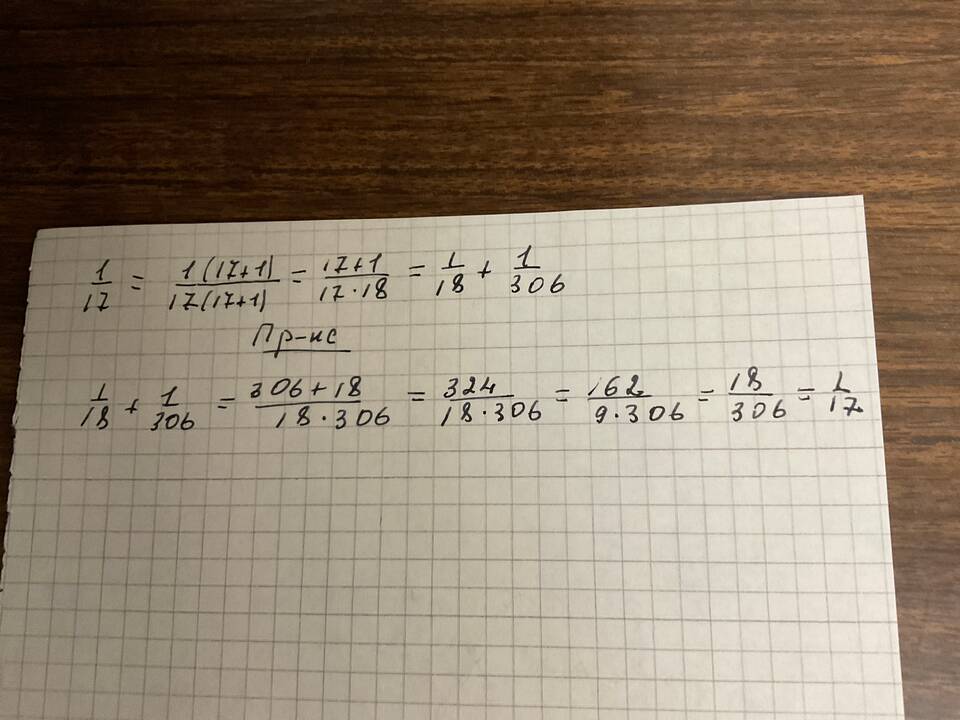 1/17 = 1(17+1)/17(17+1) = 17+1/17·18 = 1/18 + 1/306
Пр-ка
1/18 + 1/306 = 306+18/18·306 = 324/18·306 = 162/9·306 = 18/306 = 1/17